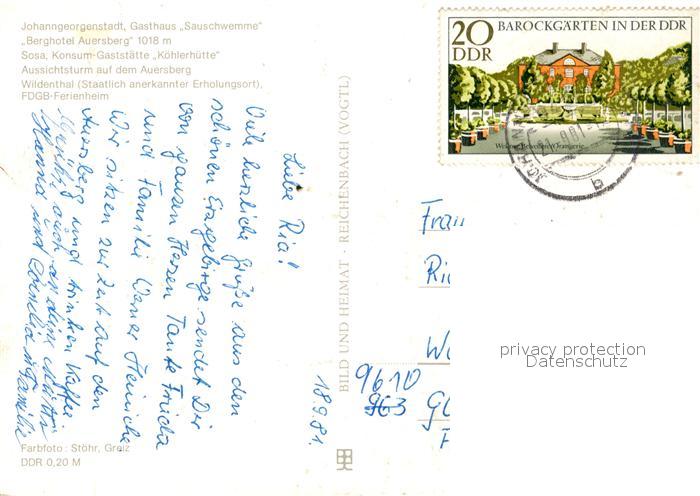 Johanngeorgenstadt, Gasthaus „Sauschwemme"
„Berghotel Auersberg" 1018 m
Sosa, Konsum-Gaststätte „Köhlerhütte"
Aussichtsturm auf dem Auersberg
Wildenthal (Staatlich anerkannter Erholungsort),
FDGB-Ferienheim
18.9.81.
Liebe Ria!
Viele herzliche Grüße aus dem
schönen Erzgebirge sendet Dir
von ganzen Herzen Tante Frieda
und Familie Werner Heinicke
Wir sitzen zur Zeit auf den
Auersberg und trinken Kaffee.
auch an deine
Hanna und Familie
Farbfoto: Stöhr, Greiz
DDR 0,20 M
BILD UND HEIMAT · REICHENBACH (VOGTL)
20
DDR
BAROCKGÄRTEN IN DER DDR
Weimar, Belvedere/Orangerie
b
Frau
9610
963
privacy protection
Datenschutz